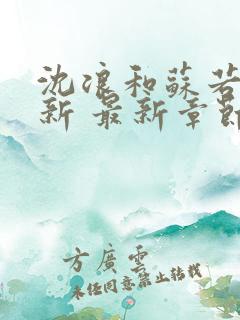 沈浪和蘇若
新 最新章節
方廣雲
未经同意禁止转载